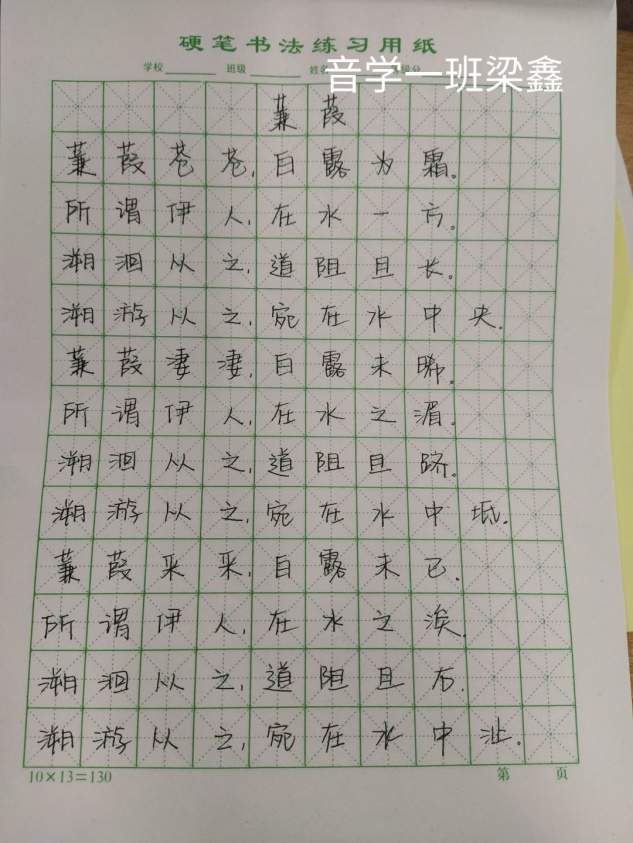 硬笔书法练习用纸
学校 班级 姓名
音学一班梁鑫
蒹葭
蒹葭苍苍,白露为霜。
所谓伊人,在水一方。
溯洄从之,道阻且长。
溯游从之,宛在水中央。
蒹葭凄凄,白露未晞。
所谓伊人,在水之湄。
溯洄从之,道阻且跻。
溯游从之,宛在水中坻。
蒹葭采采,白露未已。
所谓伊人,在水之涘。
溯洄从之,道阻且右。
溯游从之,宛在水中沚。
10×13=130 第 页